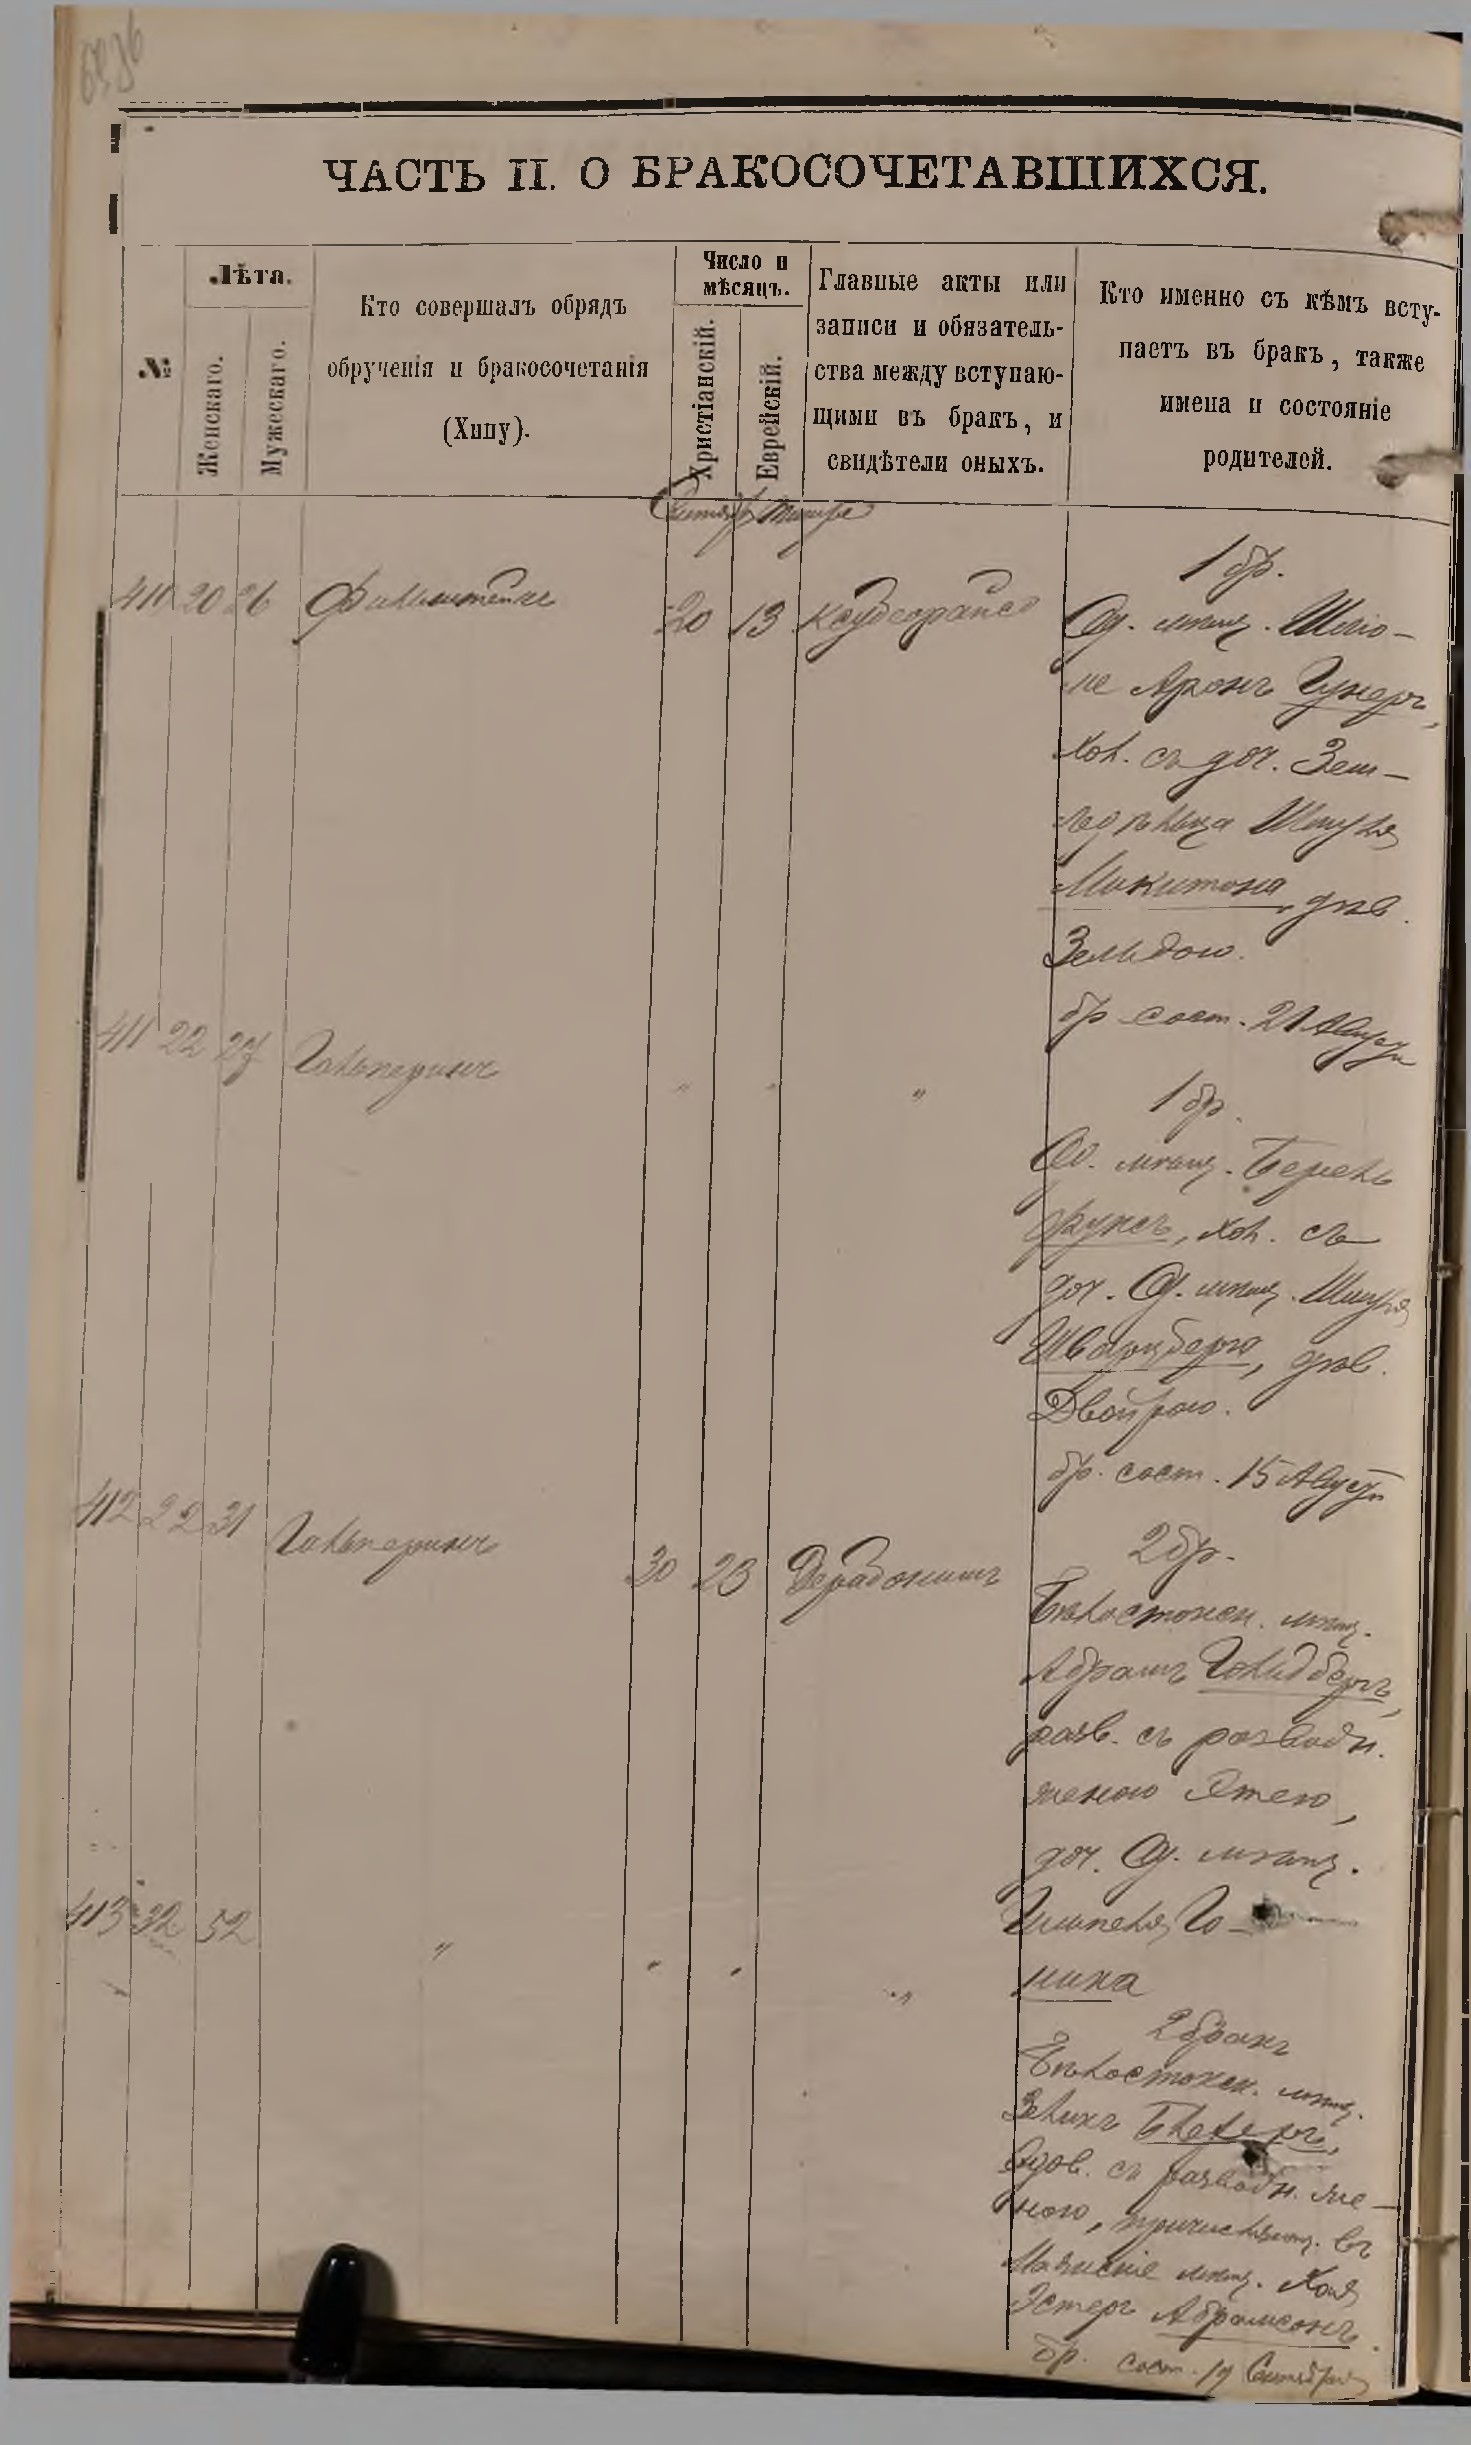 ЧАСТЬ II. О БРАКОСОЧЕТАВШИХСЯ.
№
Лѣта.
Женскаго.
Мужескаго.
Кто совершалъ обрядъ
обрученія и бракосочетанія
(Хупу).
Число и
мѣсяцъ.
Христіанскій.
Еврейскій.
Главные акты или
записи и обязатель-
ства между вступаю-
щими въ бракъ, и
свидѣтели оныхъ.
Кто именно съ кѣмъ всту-
паетъ въ бракъ, также
имена и состояніе
родителей.
410 20 26 Финкельштейнъ 20 13
1 бр.
Од. мѣщ. Шлio-
ме Аронъ Гунеръ,
хол. съ доч. Зем-
ледѣльца Шмуля
Микитона, дѣв.
Зельдою.
бр. сост. 21 Августа
411 22 27 Гальперинъ " " "
1 бр.
Од. мѣщ. Берель
Фуксъ, хол. съ
доч. Од. мѣщ. Шмуля
Шварцберга, дѣв.
Двойрою.
бр. сост. 15 Августа
412 22 31 Гальперинъ 30 23
2 бр.
Бѣлостокск. мѣщ.
Абрамъ Гольдбергъ,
разв. съ разводн.
женою Этею,
доч. Од. мѣщ.
Гимпеля Го-
нина
413 32 52 " " " "
2 бракъ
Бѣлостокск. мѣщ.
Зеликъ Блехеръ,
вдов. съ разводн. же-
ною, причислен. въ
мѣщ. Хая
Эстеръ Абрамсонъ.
бр. сост. 19 Сентября